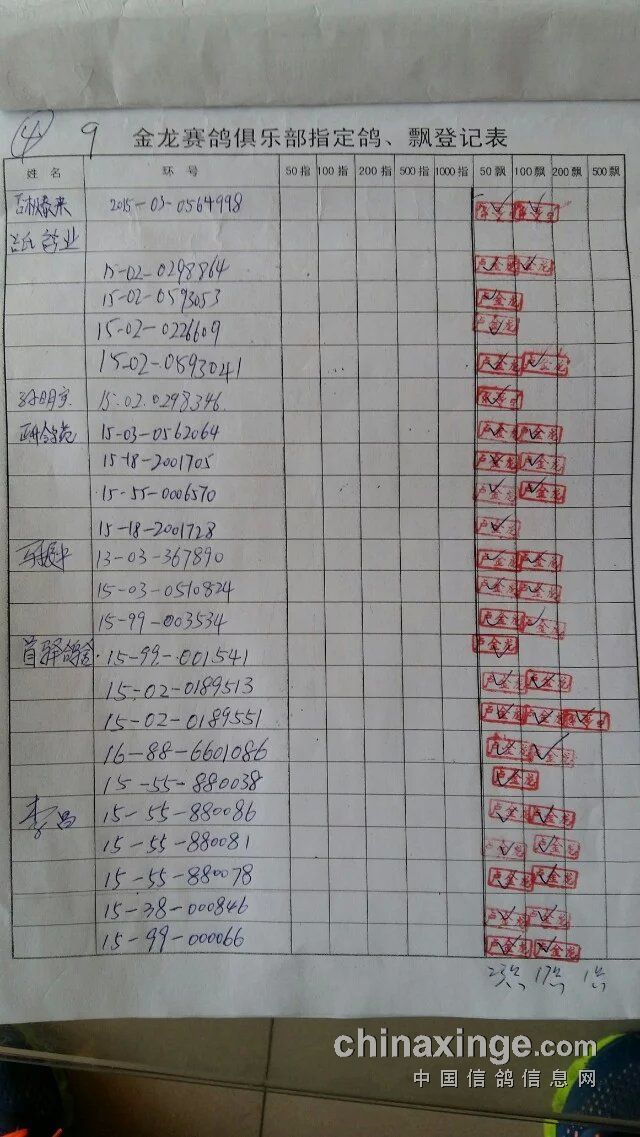 ④ 9
金龙赛鸽俱乐部指定鸽、飘登记表
姓名 环号 50指 100指 200指 500指 1000指 50飘 100飘 200飘 500飘
2015-03-0564998
鸽业
15-02-0298864 卢金龙 卢金龙
15-02-0593053 卢金龙
15-02-0226609 卢金龙
15-02-0593041 卢金龙 卢金龙
15-02-0298346
15-03-0562064 卢金龙 卢金龙
15-18-2001705 卢金龙 卢金龙
15-55-0006570 卢金龙 卢金龙
15-18-2001728 卢金龙
13-03-367890 卢金龙 卢金龙
15-03-0510824 卢金龙 卢金龙
15-99-003534 卢金龙 卢金龙
首驿鸽舍 15-99-001541 卢金龙
15-02-0189513 卢金龙 卢金龙
15-02-0189551 卢金龙 卢金龙
16-88-6601086 卢金龙 卢金龙
15-55-880038 卢金龙
李 15-55-880086 卢金龙 卢金龙
15-55-880081 卢金龙 卢金龙
15-55-880078 卢金龙 卢金龙
15-38-000846 卢金龙 卢金龙
15-99-000066 卢金龙 卢金龙
23 17 1
chinaxinge.com
中国信鸽信息网